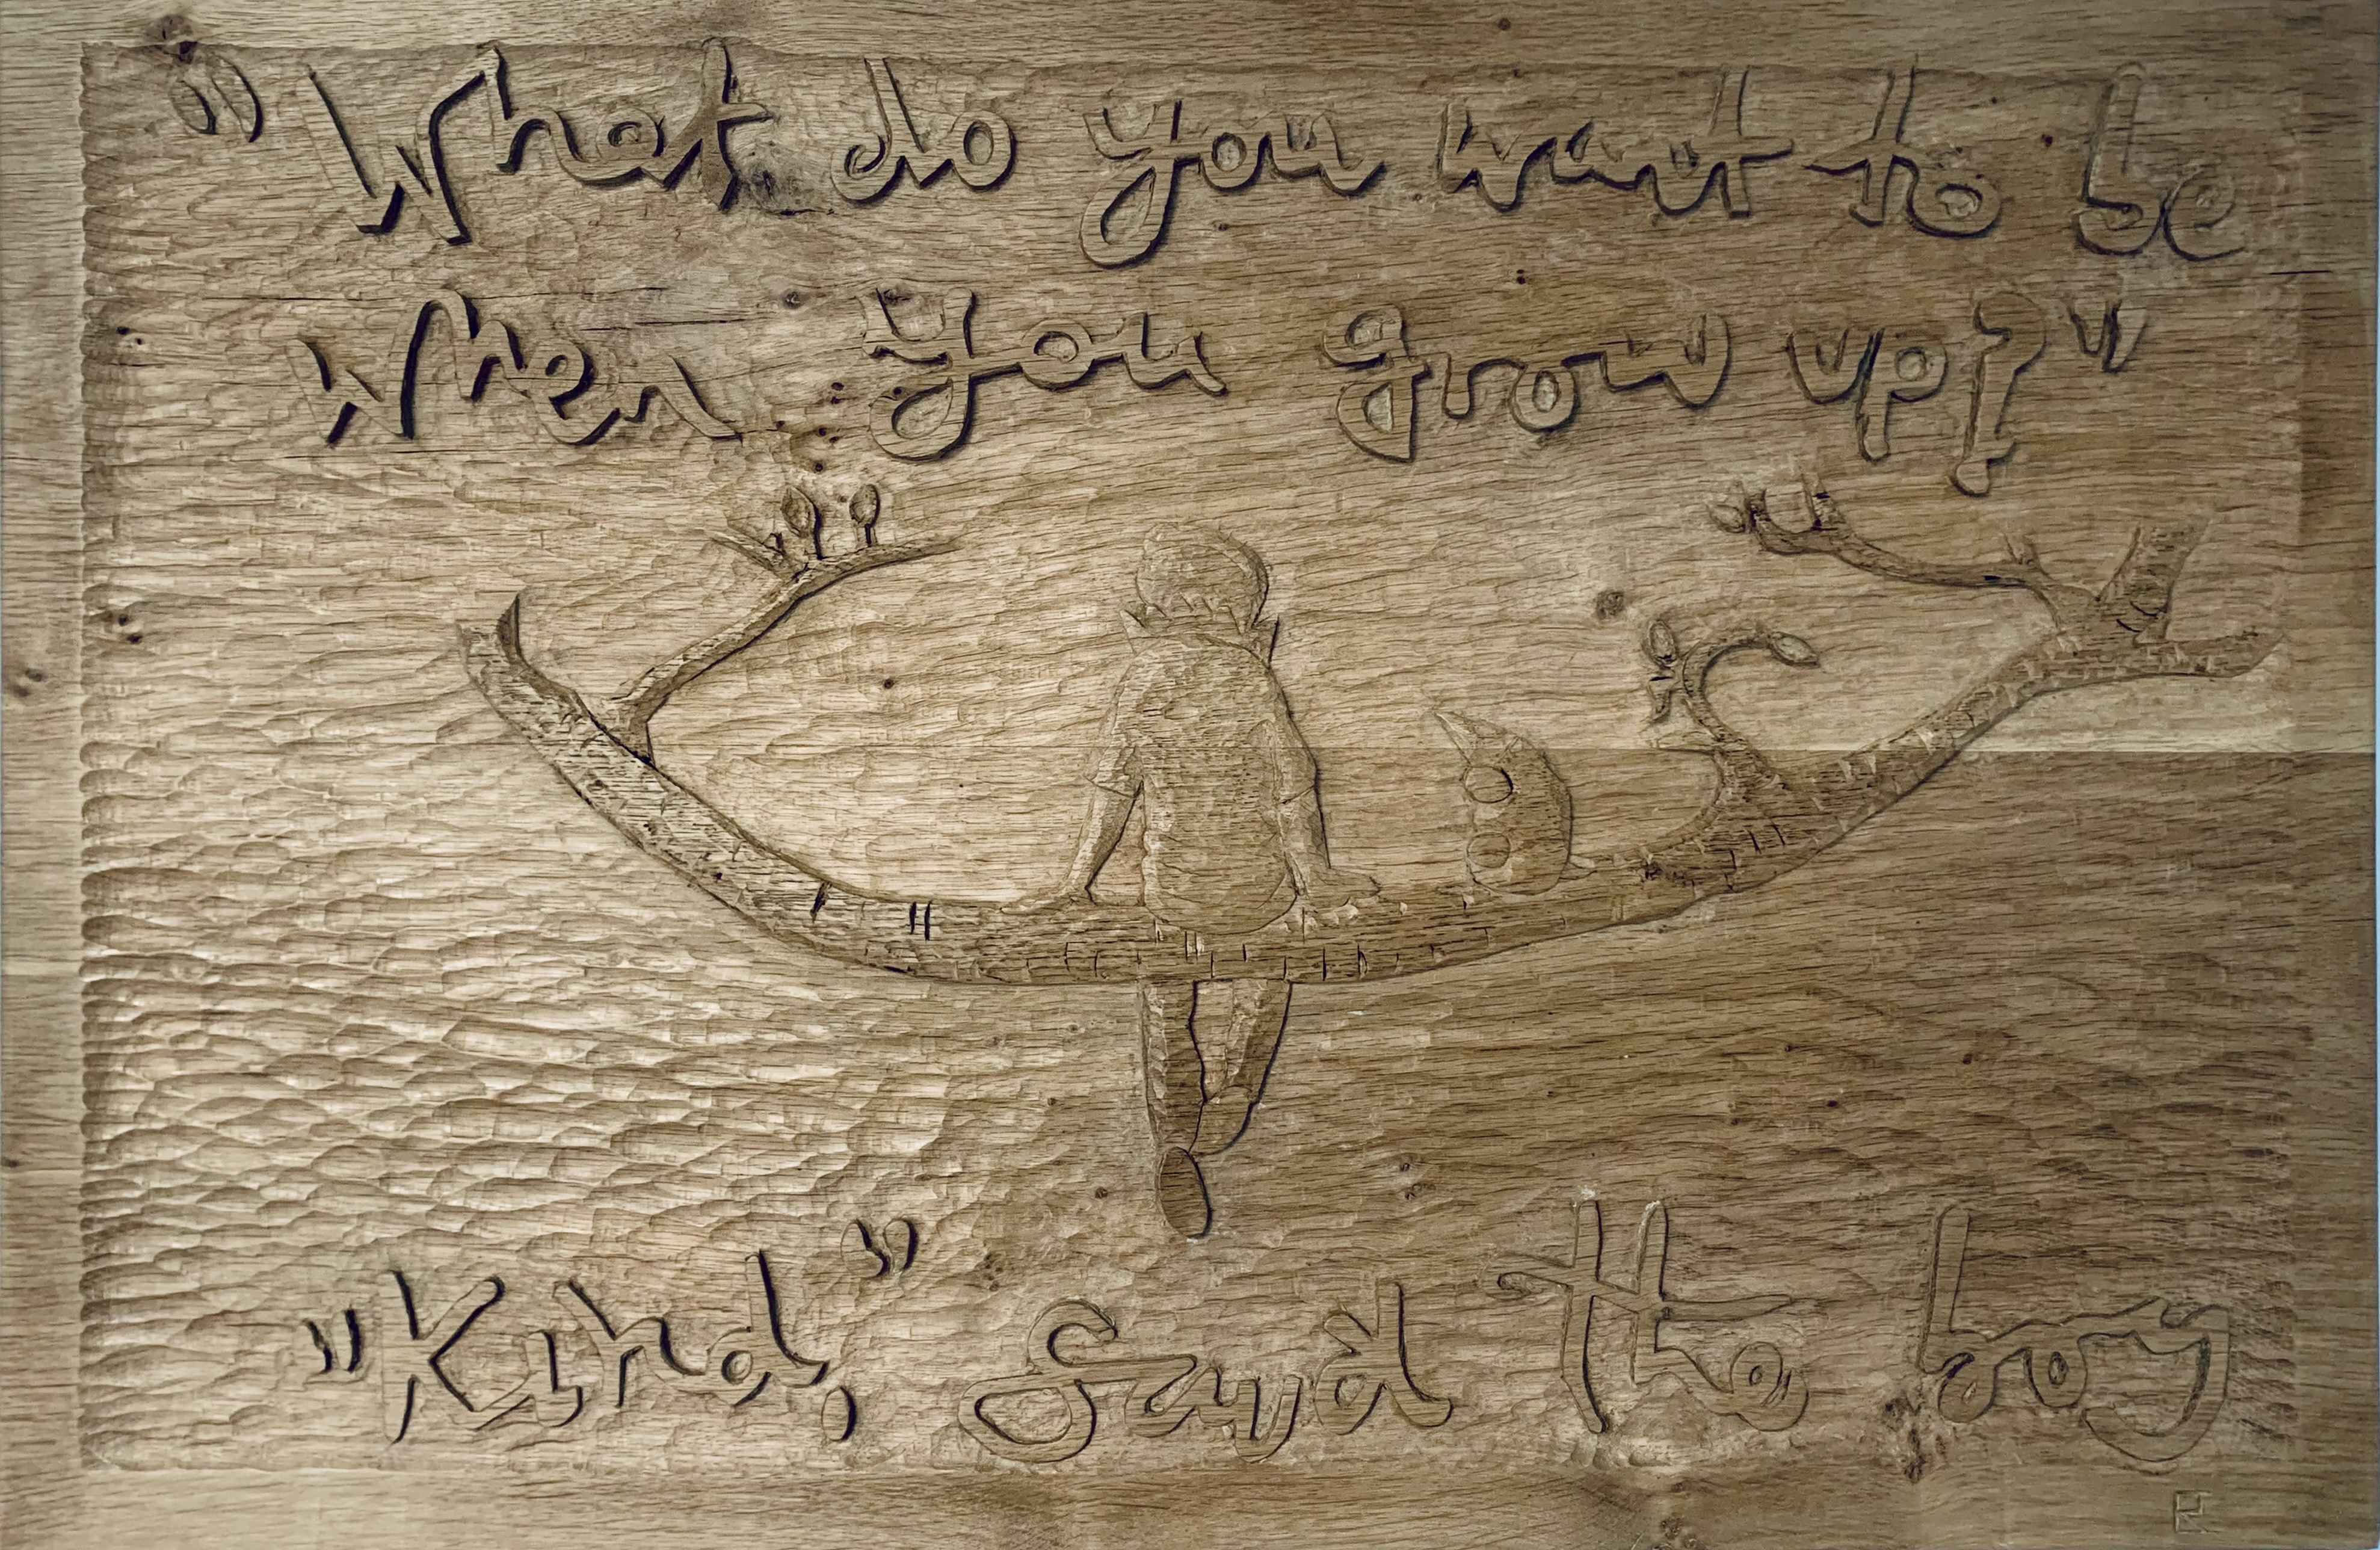 "What do you want to be
when you grow up?"
"Kind," said the boy